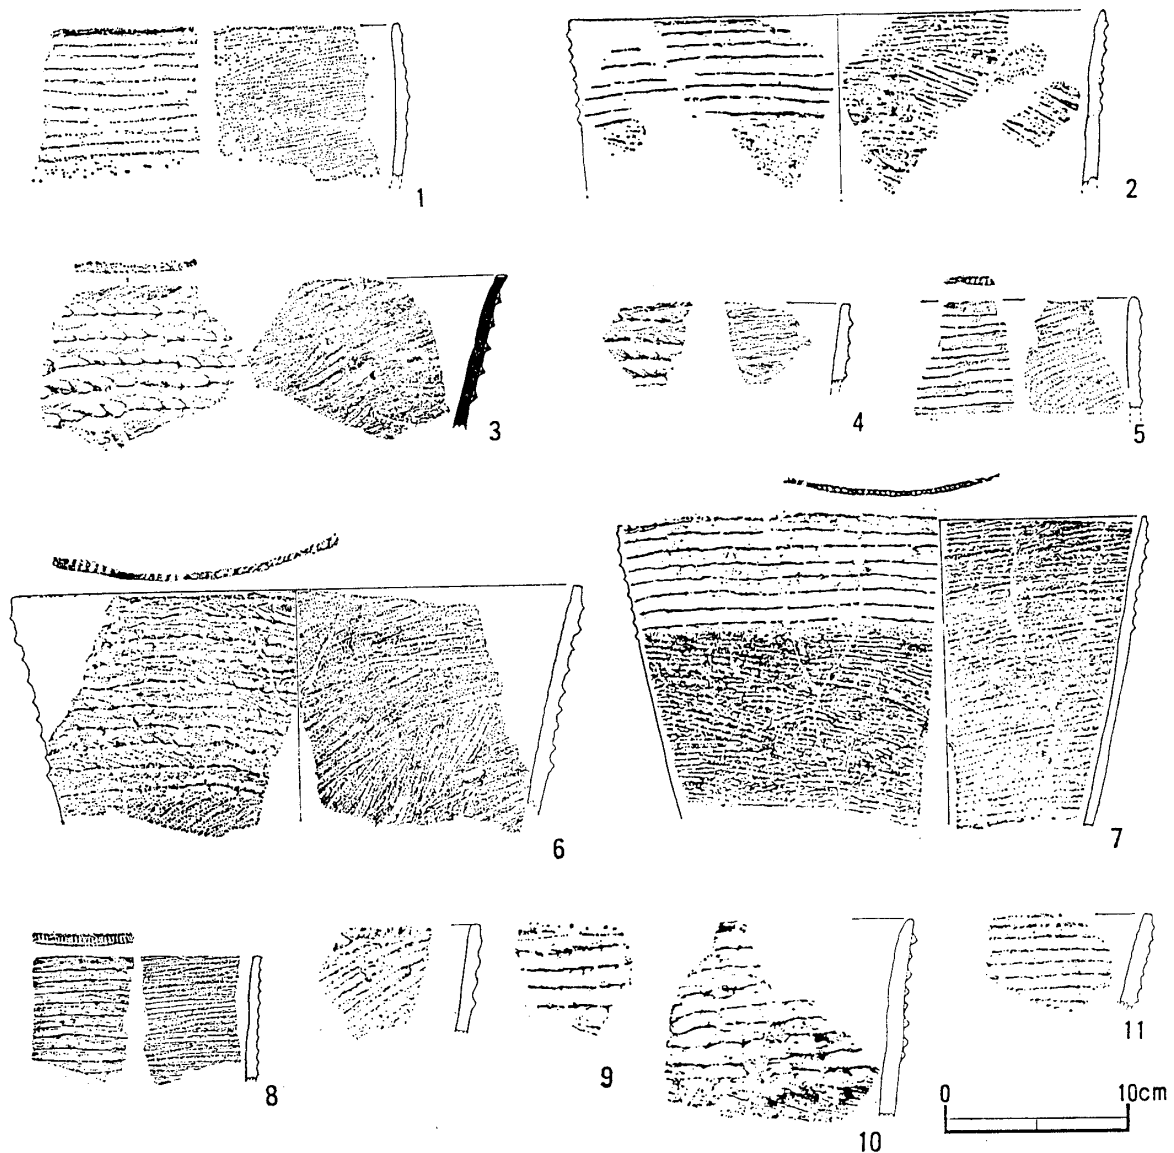 1
2
3
4
5
6
7
8
9
10
11
0 10cm